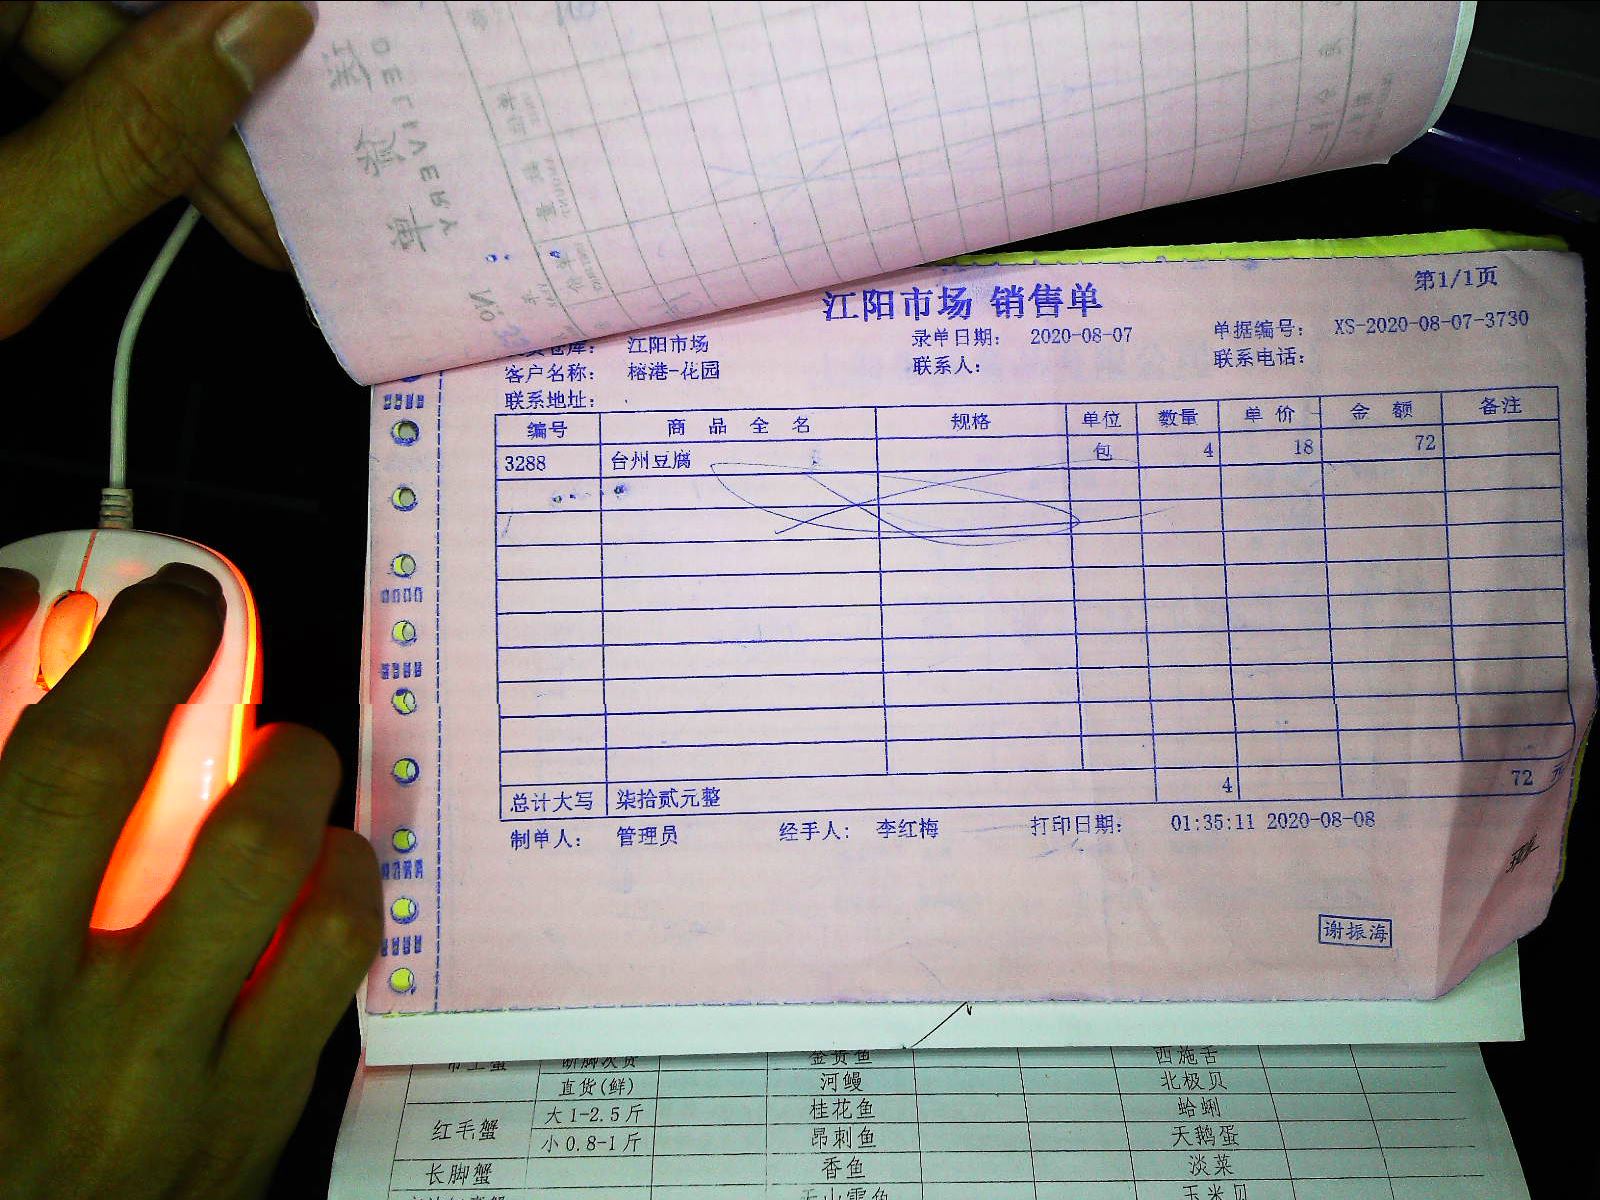 送 货 单
DELIVERY
No
第1/1页
江阳市场 销售单
江阳市场 录单日期： 2020-08-07 单据编号： XS-2020-08-07-3730
客户名称： 榕港-花园 联系人： 联系电话：
联系地址：
编号 商 品 全 名 规格 单位 数量 单 价 金 额 备注
3288 台州豆腐 包 4 18 72
总计大写 柒拾贰元整 4 72 元
制单人： 管理员 经手人: 李红梅 打印日期： 01:35:11 2020-08-08
谢振海
西施舌
直货(鲜) 河鳗 北极贝
红毛蟹 大1-2.5斤 桂花鱼 蛤蜊
小0.8-1斤 昂刺鱼 天鹅蛋
长脚蟹 香鱼 淡菜
玉米贝